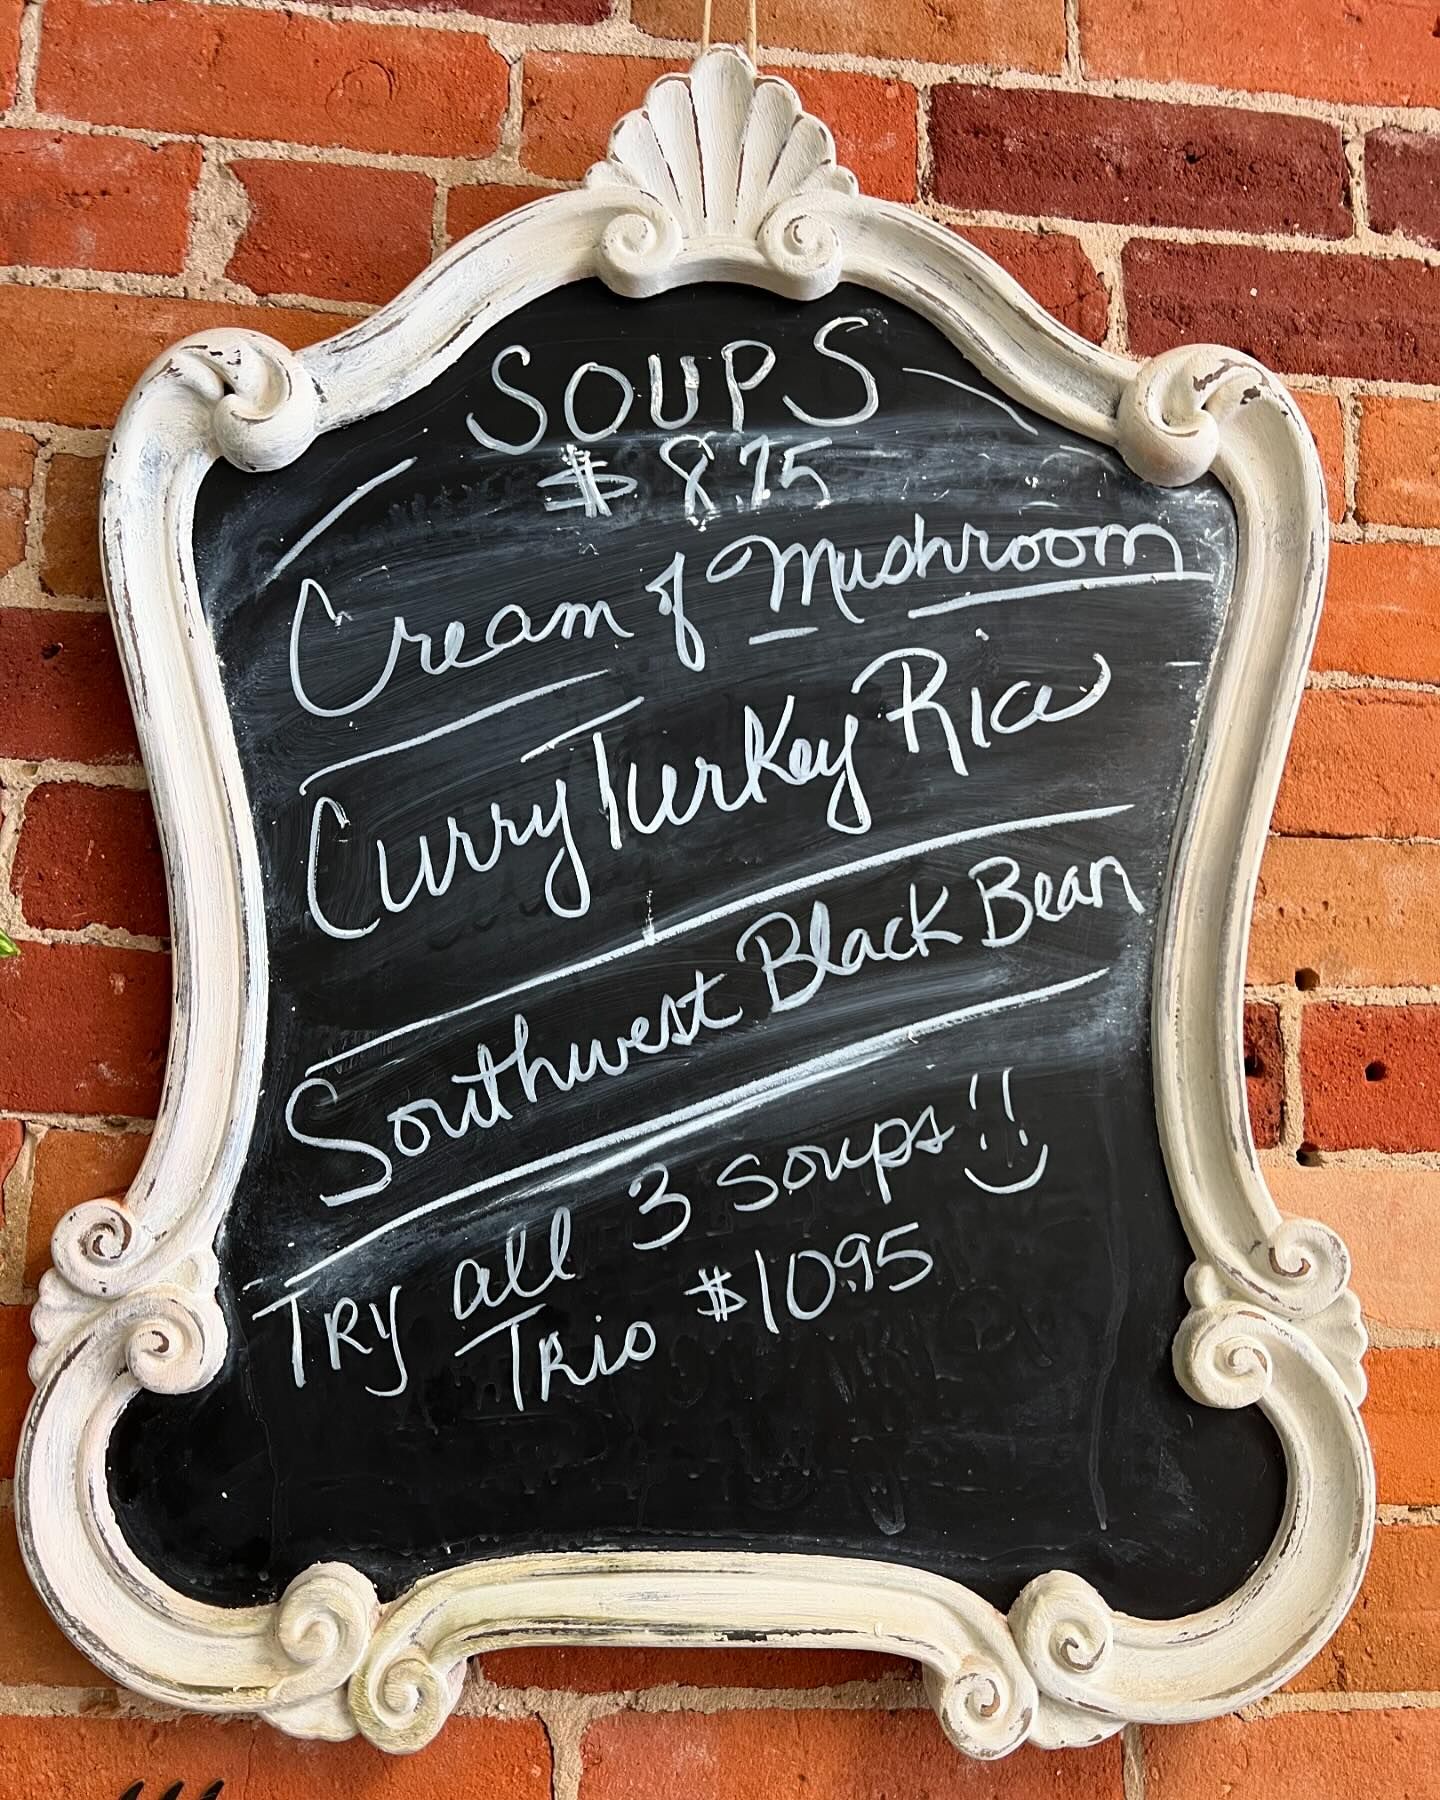 SOUPS
$8.75
Cream of Mushroom
Curry Turkey Rice
Southwest Black Bean
Try all 3 soups!!
Trio $10.95